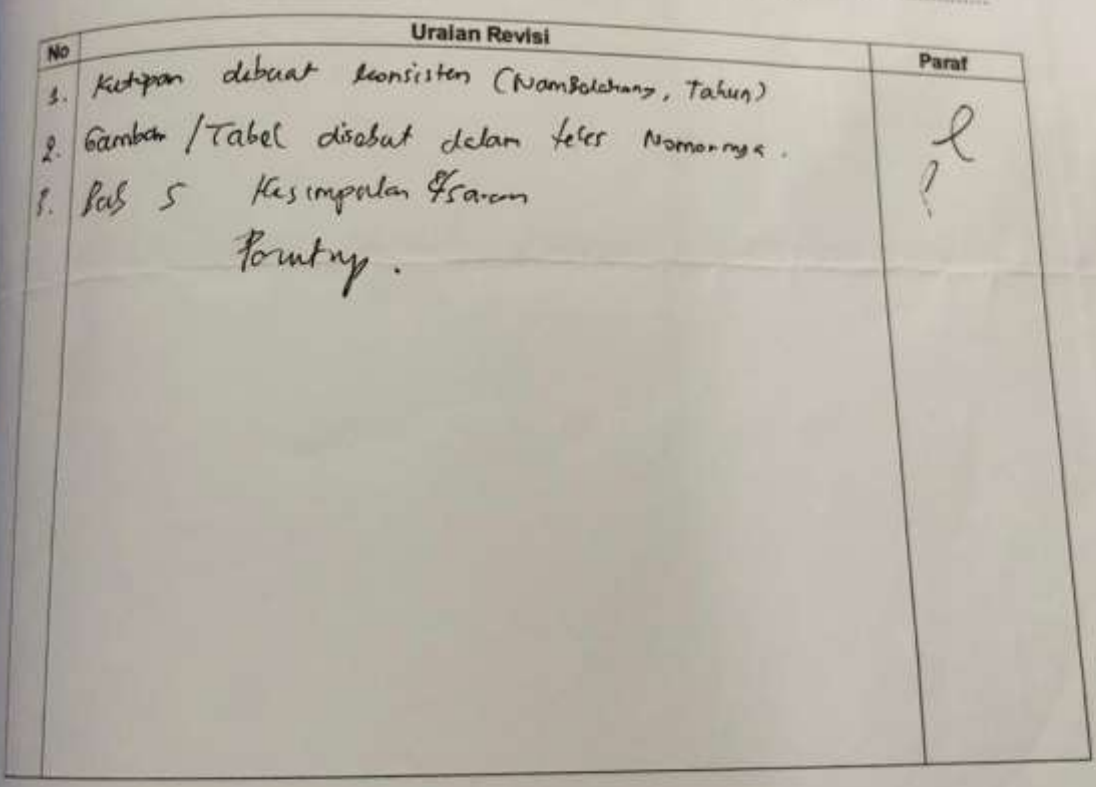 No Uraian Revisi Paraf
1. Kutipan dibuat konsisten (Nam Belakang, Tahun)
2. Gambar / Tabel disebut dalam teks Nomornya.
3. Bab 5 Kesimpulan & Saran
Penutup.